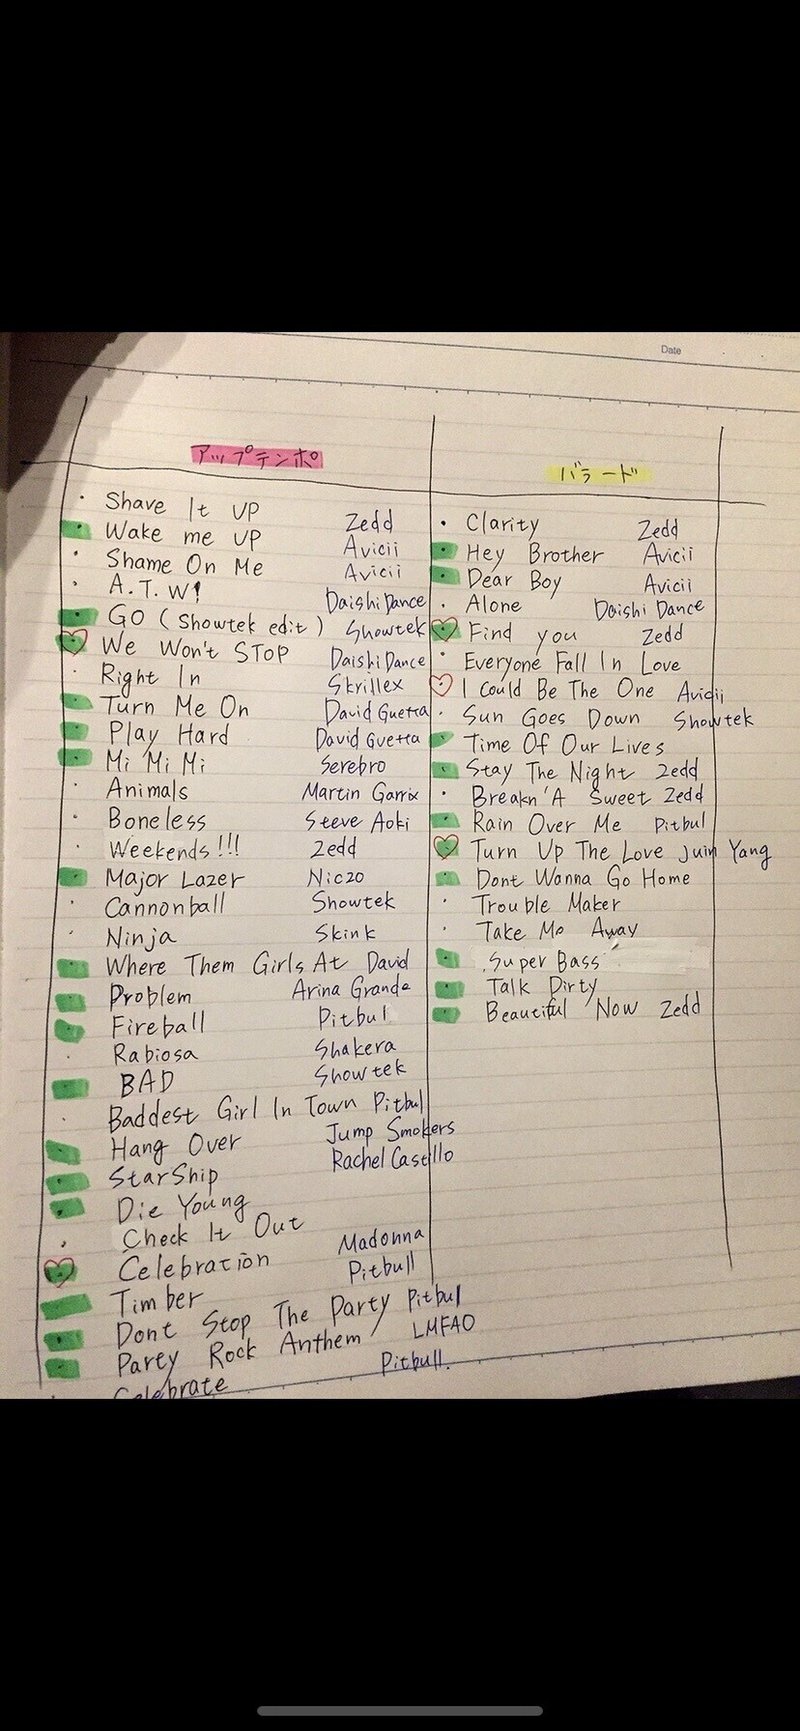 Date
アップテンポ
バラード
Shave It UP Zedd
Wake me UP Avicii
Shame On Me Avicii
A.T.W! Daishi Dance
GO (Showtek edit) Showtek
We Won't STOP Daishi Dance
Right In Skrillex
Turn Me On David Guetta
Play Hard David Guetta
Mi Mi Mi Serebro
Animals Martin Garrix
Boneless Steve Aoki
Weekends!!! Zedd
Major Lazer Nic20
Cannonball Showtek
Ninja Skink
Where Them Girls At David
Problem Arina Grande
Fireball Pitbul
Rabiosa Shakera
BAD Showtek
Baddest Girl In Town Pitbul
Hang Over Jump Smokers
StarShip Rachel Castillo
Die Young
Check It Out
Celebration Madonna
Timber Pitbull
Dont Stop The Party Pitbul
Party Rock Anthem LMFAO
Celebrate Pitbull.
Clarity Zedd
Hey Brother Avicii
Dear Boy Avicii
Alone Daishi Dance
Find you Zedd
Everyone Fall In Love
I Could Be The One Avicii
Sun Goes Down Showtek
Time Of Our Lives
Stay The Night Zedd
Breakn'A Sweet Zedd
Rain Over Me Pitbul
Turn Up The Love Juin Yang
Dont Wanna Go Home
Trouble Maker
Take Me Away
Super Bass
Talk Dirty
Beautiful Now Zedd